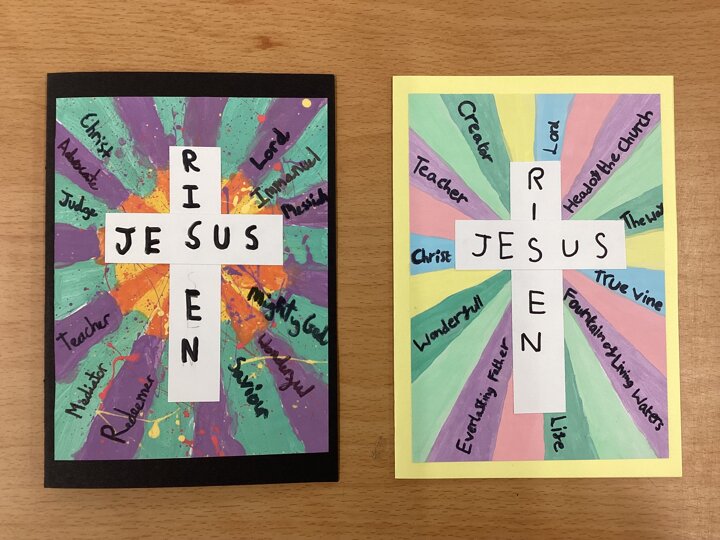 Christ
Advocate
Judge
Teacher
Mediator
Redeemer
RISEN
JESUS
Lord
Immanuel
Messiah
Mighty God
Wonderful
Saviour
Creator
Teacher
Christ
Wonderfull
Everlasting Father
RISEN
JESUS
Lord
Head of the Church
The Way
True Vine
Fountain of Living Waters
Life